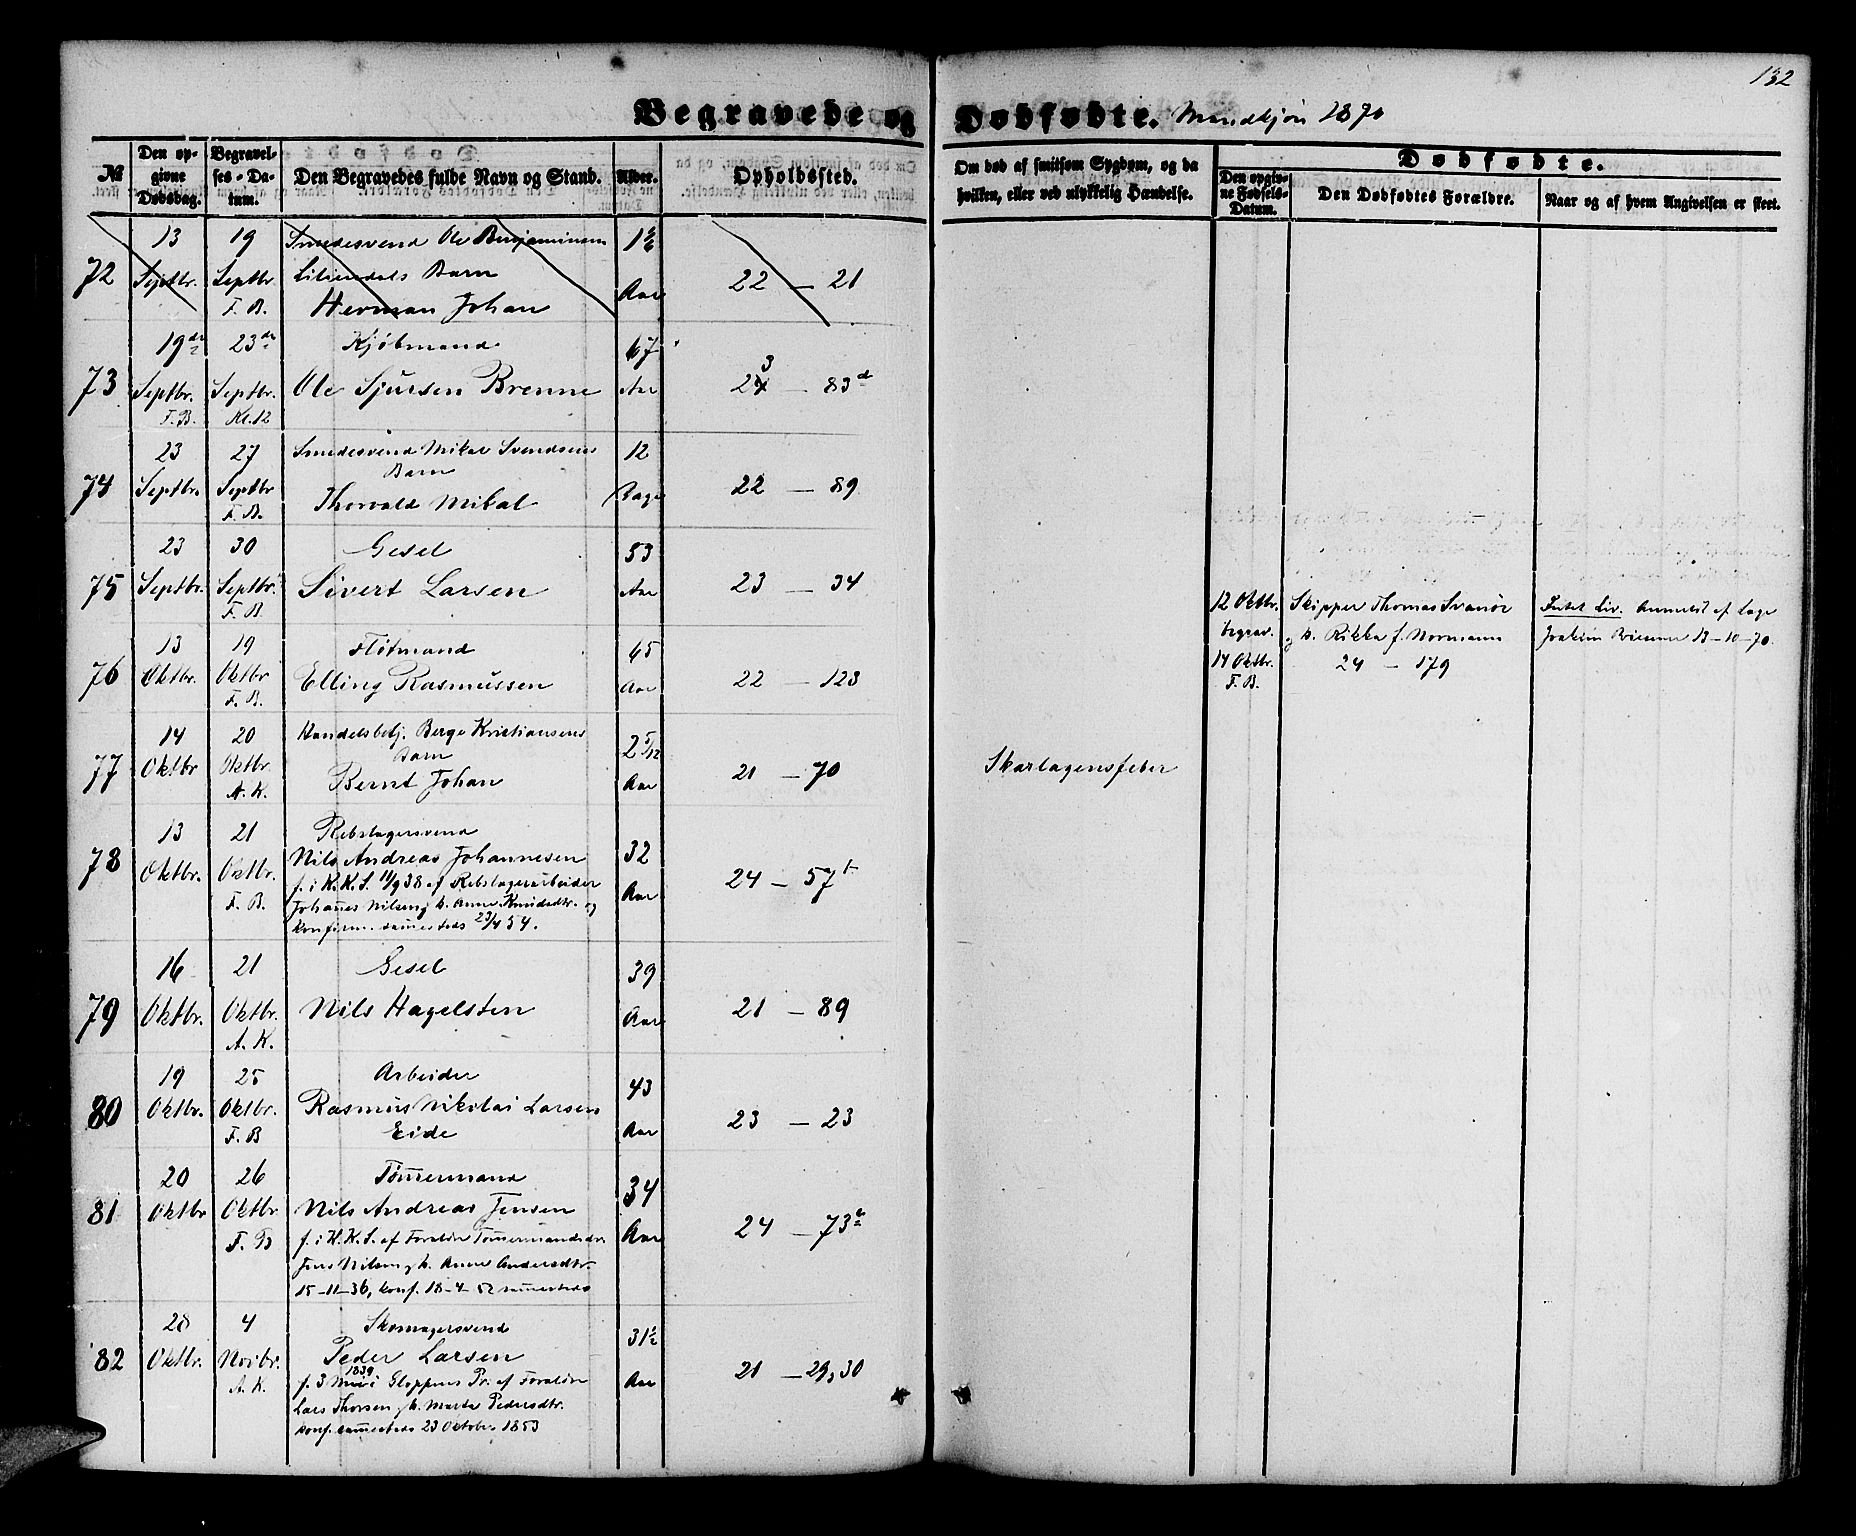 132
Begravede og Dødfødte. Mandkjøn 1870
№
Den opgivne Dødsdag.
Begravelses-Datum.
Den Begravedes fulde Navn og Stand.
Alder.
Opholdssted.
Om død af smitsom Sygdom, og da hvilken, eller ved ulykkelig Hændelse.
Dødfødte.
Den opgivne Fødsels-Datum.
Den Dødfødtes Forældre.
Naar og af hvem Angivelsen er skeet.
72
13 Septbr.
19 Septbr. F. B.
Smedesvend Ole Benjaminsen
Liliendals Barn
Herman Johan
Aar
22 — 21
73
19de Septbr. F. B.
23de Septbr. Kl. 12
Kjøbmand
Ole Sjursen Brenne
67 Aar
23 — 83d
74
23 Septbr.
27 Septbr F. B.
Smedesvend Mikal Svendsens
Barn
Thorvald Mikal
12 Dage
22 — 89
75
23 Septbr.
30 Septbr. F. B.
Gesel
Sivert Larsen
53 Aar
23 — 34
12 Oktbr.
begrav.
14 Oktbr.
F. B.
Skipper Thomas Svanöe
og h. Rikka f. Normann
24 — 179
Intet Liv. Anmeldt af Læge
Joakim 13-10-70.
76
13 Oktbr.
19 Oktbr F. B.
Fløtmand
Elling Rasmussen
65 Aar
22 — 123
77
14 Oktbr
20 Oktbr. A. K.
Handelsbetj. Berge Kristiansens
Barn
Bernt Johan
2 5/12 Aar
21 — 70
Skarlagensfeber
78
13 Oktbr.
21 Oktbr. F. B.
Rebslagersvend
Nils Andreas Johannesen
f. i K. K. S. 11/9 38 af Rebslagerarbeider
Johanes Nilsen og h. Anne Knudsdtr. og
konfirm. samesteds 23/4 54.
32 Aar
24 — 57b
79
16 Oktbr.
21 Oktbr. A. K.
Gesel
Nils Hagelsten
39 Aar
21 — 89
80
19 Oktbr.
25 Oktbr. F. B
Arbeider
Rasmus Nikolai Larsen
Eide
43 Aar
23 — 23
81
20 Oktbr
26 Oktbr F. B
Tømermand
Nils Andreas Jensen
f. i K. K. S. af Foreldre Tømermand
Jens Nilsen og h. Anne Andersdtr.
15-11-36, konf. 18-4-52 samesteds
34 Aar
24 — 73
82
28 Oktbr.
4 Novbr. A. K.
Skomagersvend
Peder Larsen
f. 3 Mai 1839 i Gloppens Pr. af Foreldre
Lars Thorsen og h. Marta Pedersdtr.
konf. samesteds 23 Oktober 1853
31½ Aar
21 — 29, 30